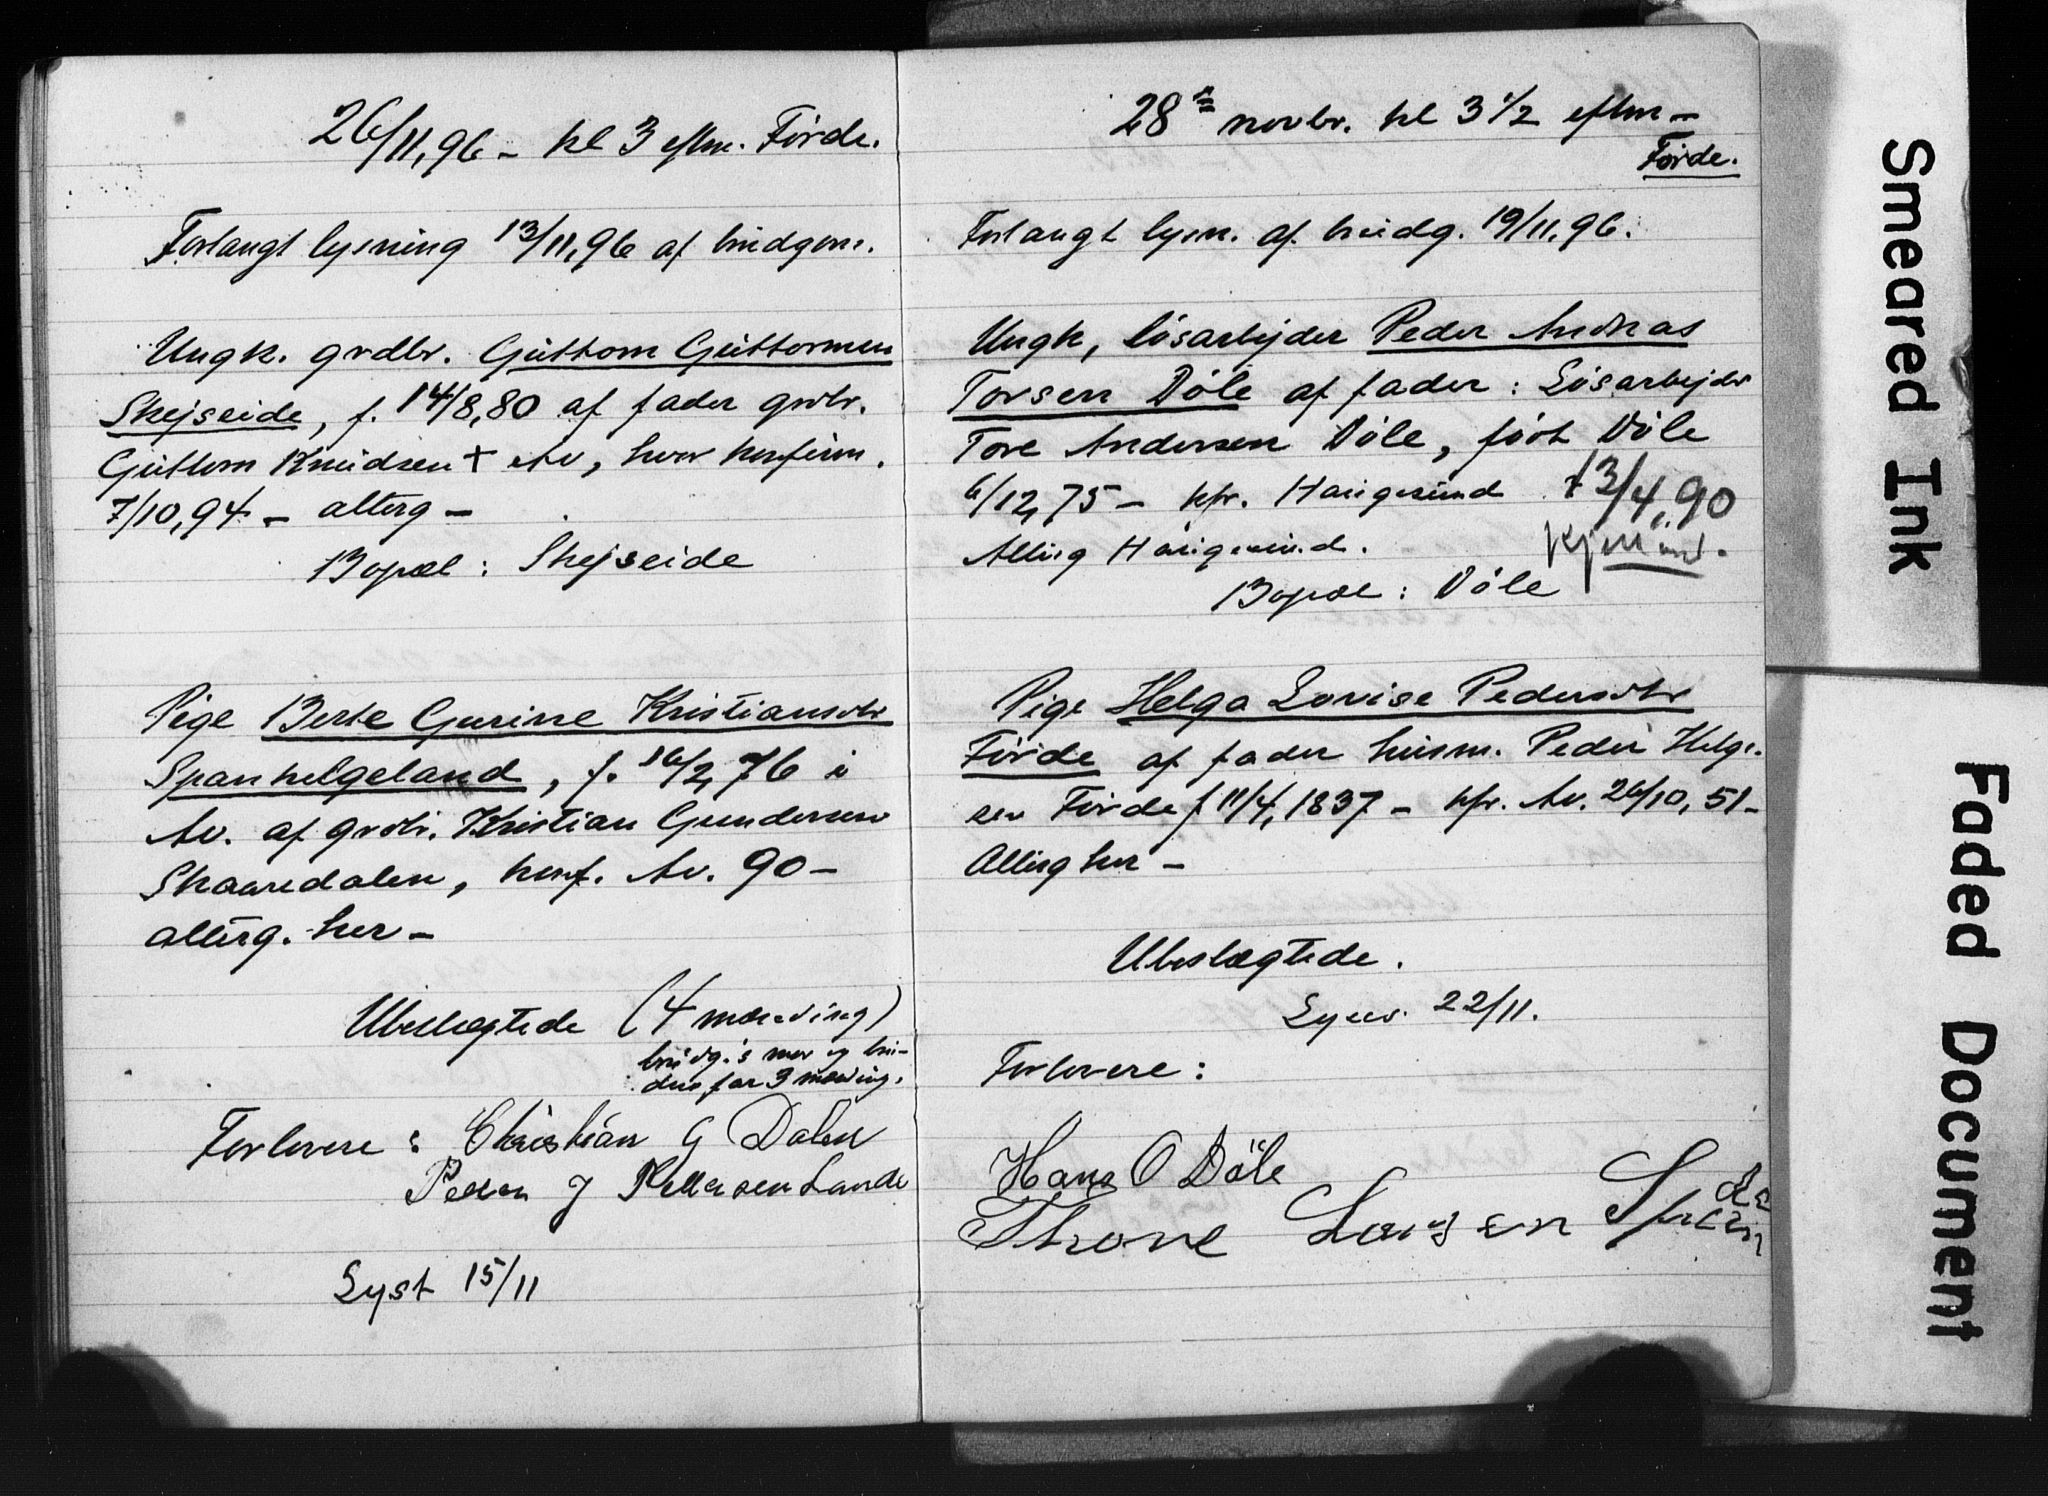 26/11,96 – kl 3 eftm. Förde.
Forlangt lysning 13/11,96 af brudgom.
Ungk. grdbr. Guttorm Guttormsen
Skejseide, f. 14/8,80 af fader grdbr.
Guttorm Knudsen + Av, hvor konfirm.
7/10,94 – alterg –
Bopæl : Skejseide
Pige Berte Gurine Kristiansdtr
Spanhelgeland, f. 16/2,76 i
Av. af grdbr. Kristian Gundersen
Skaaredalen, konf. Av. 90 –
alterg. her –
Ubeslægtede (4 mænding)
brudg.'s mor og bru-
dens far 3 mænding.
Forlovere : Christian G Dalen
Peder J Pettersen Lande
Lyst 15/11
28 novbr. kl 3 1/2 eftm –
Förde.
Forlangt lysn. af brudg. 19/11,96.
Ungk, lösarbejder Peder Andreas
Torsen Döle af fader : Lösarbejder
Tore Andersen Döle, födt Döle
6/12,75 – kfr. Haugesund 13/4,90
Alterg Haugesund.
Bopæl : Döle
Pige Helga Lovise Pedersdtr
Förde af fader husm. Peder Helge-
sen Förde f 11/4,1837 – kfr. Av. 26/10,51 –
Alterg her –
Ubeslægtede.
Lyses. 22/11.
Forlovere :
Hans O Döle
Throne Larsen
Smeared Ink
Faded Document